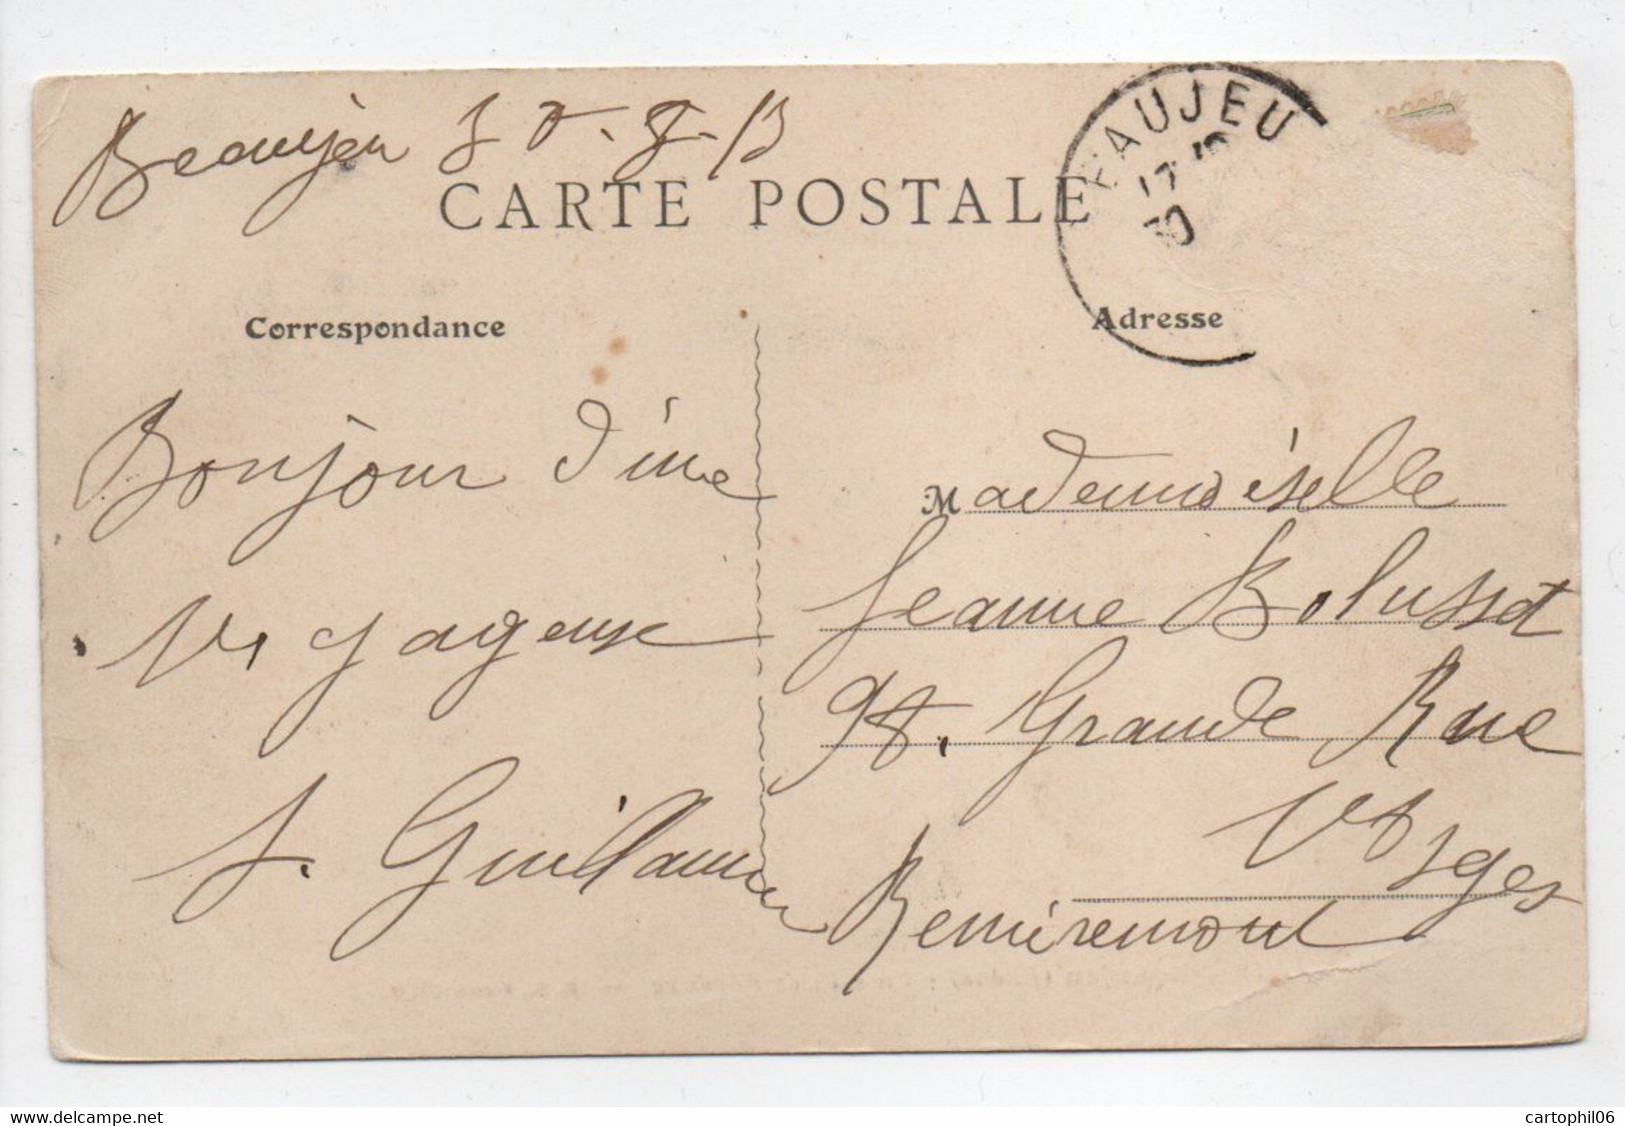 Beaujeu 30-8-13
CARTE POSTALE
BEAUJEU
Correspondance
Adresse
Bonjour d'une
Voyageuse
J. Guillaume
Mademoiselle
Jeanne
Grande Rue
Vosges
Remiremont
cartophil06